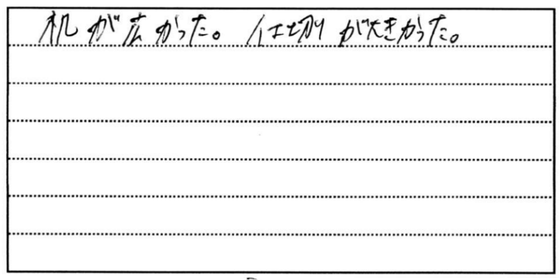 机が広かった。仕切りが大きかった。